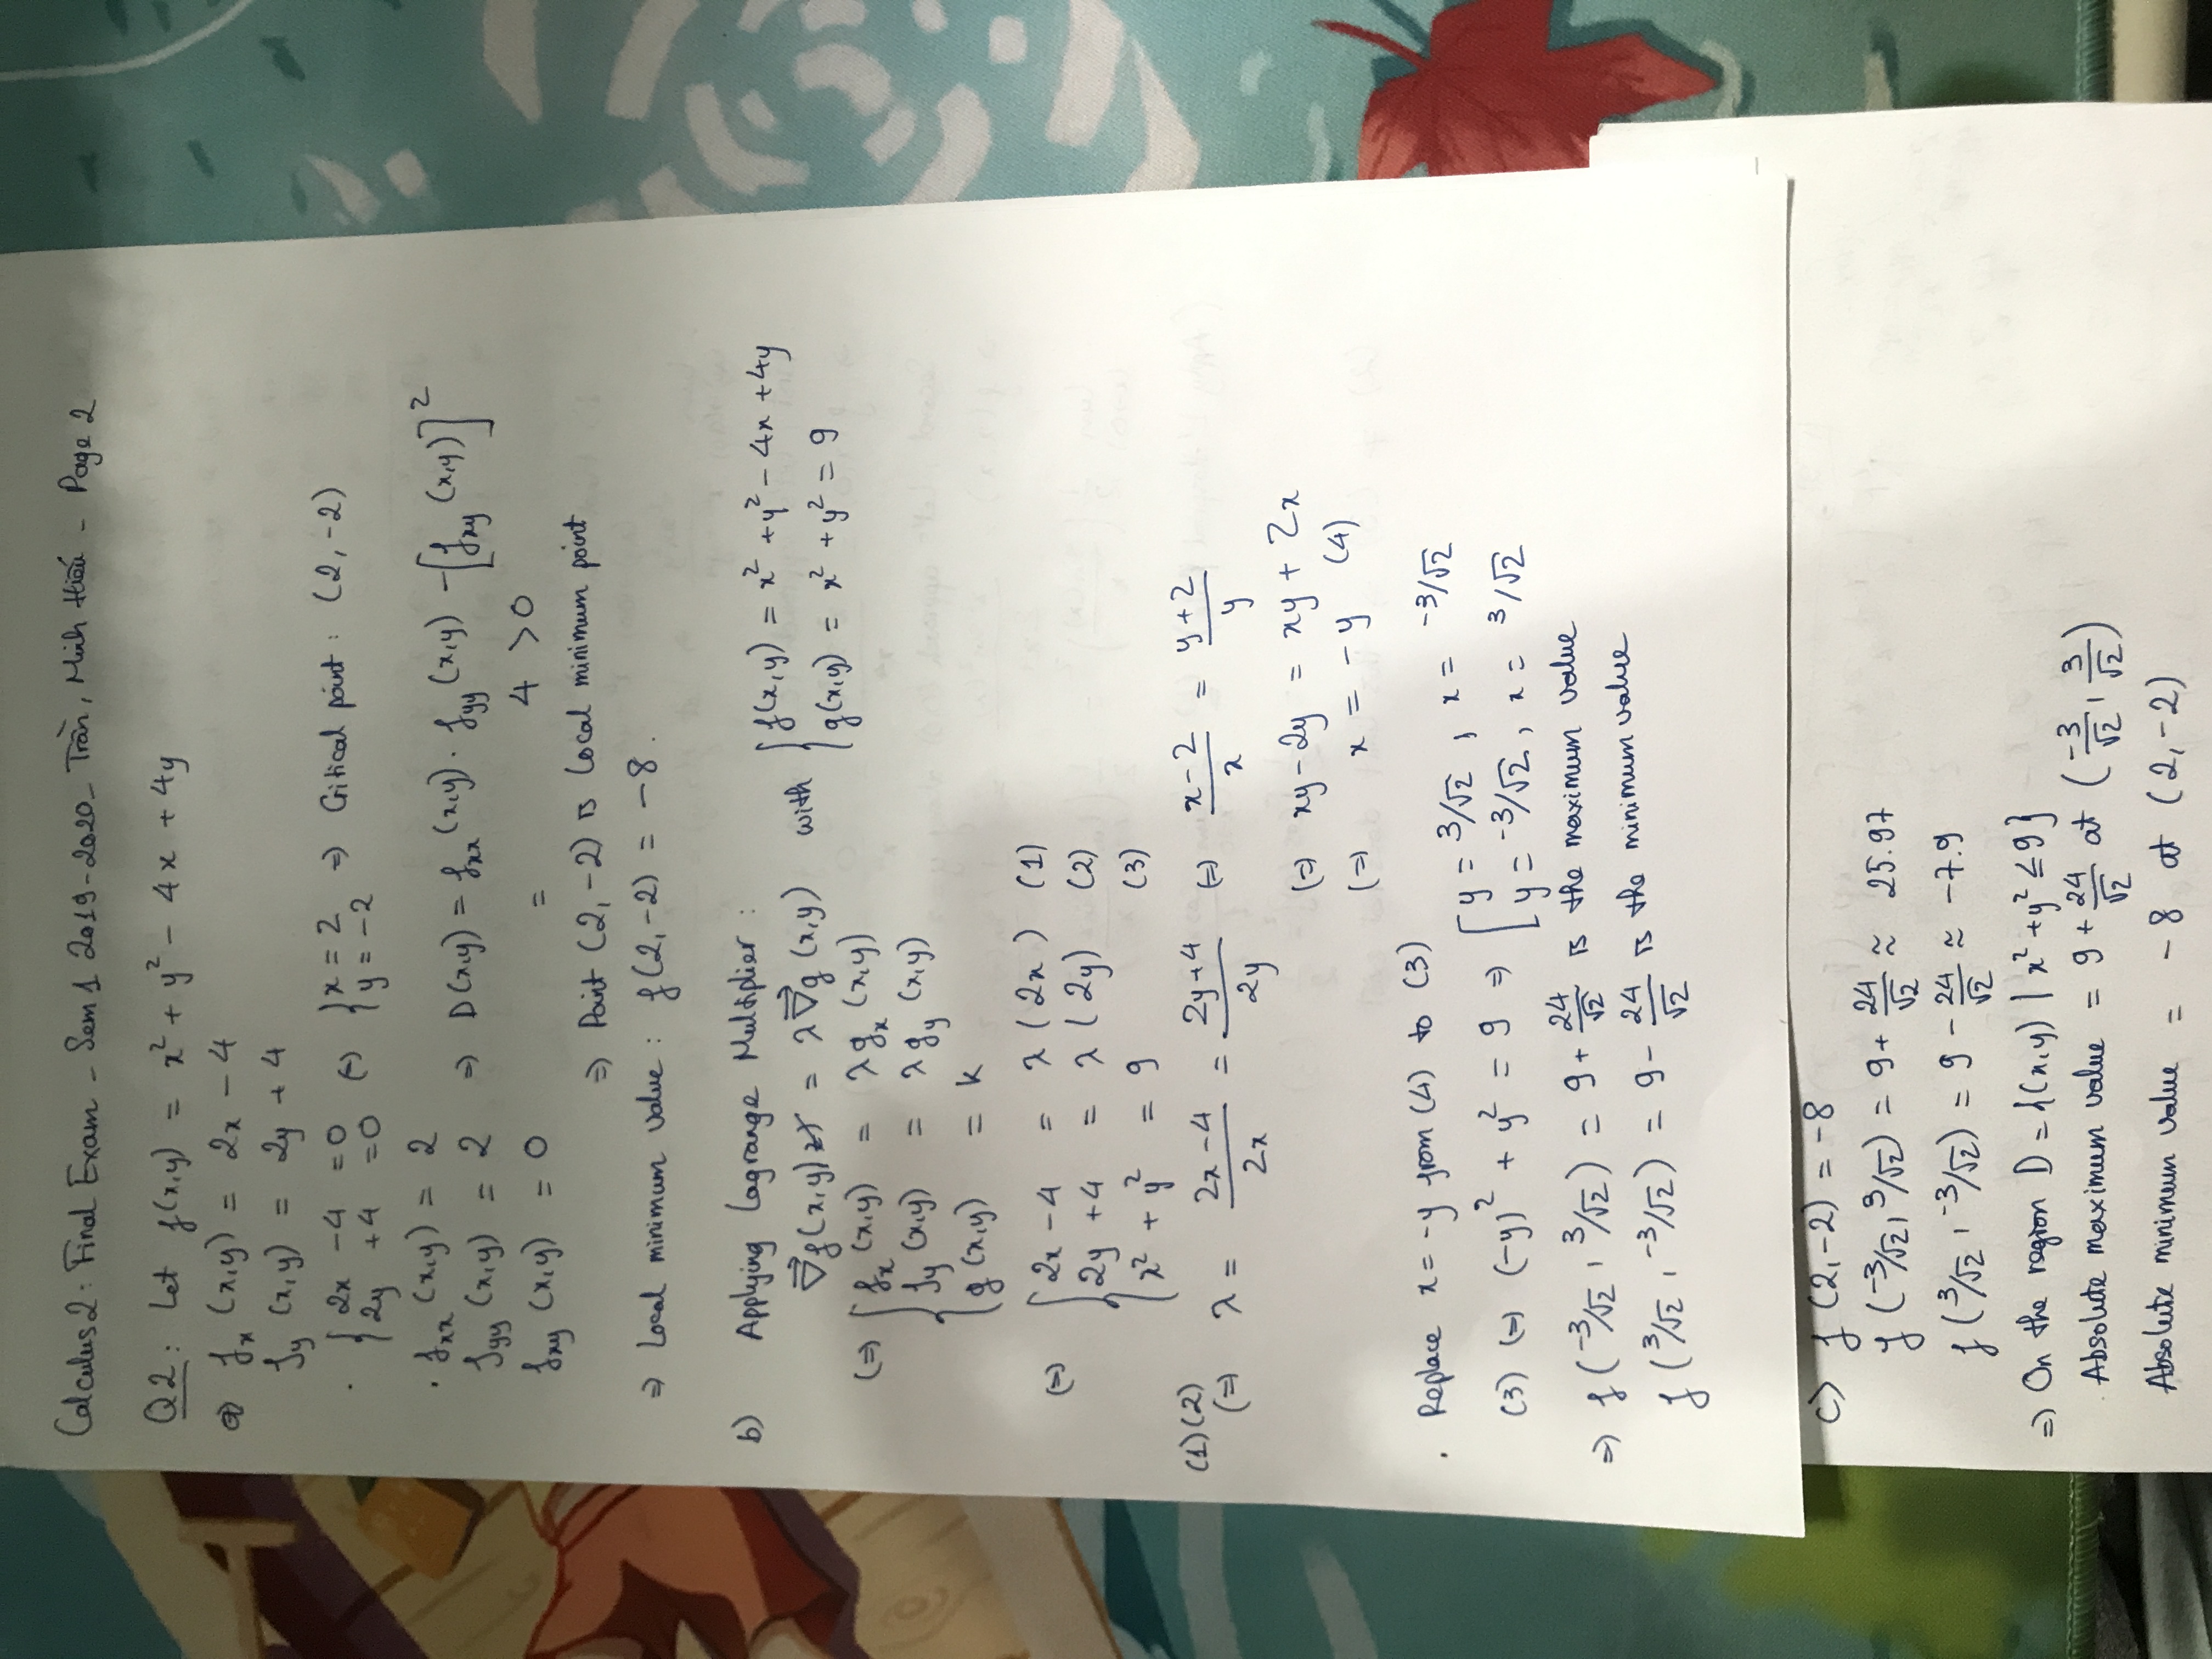 Calculus 2: Final Exam - Sem 1 2019-2020 - Trần, Minh Hiếu - Page 2
Q2: Let f(x,y) = x² + y² - 4x + 4y
a) f_x (x,y) = 2x - 4
f_y (x,y) = 2y + 4
. { 2x - 4 = 0 (=) { x = 2 => Critical point: (2, -2)
{ 2y + 4 = 0 { y = -2
. f_xx (x,y) = 2
f_yy (x,y) = 2 => D(x,y) = f_xx (x,y) . f_yy (x,y) - [f_xy (x,y)]²
f_xy (x,y) = 0 = 4 > 0
=> Point (2, -2) is local minimum point
=> Local minimum value: f(2, -2) = -8.
b) Applying Lagrange Multiplier:
∇⃗f(x,y) = λ∇⃗g(x,y) with { f(x,y) = x² + y² - 4x + 4y
{ g(x,y) = x² + y² = 9
(=) { f_x (x,y) = λ g_x (x,y)
{ f_y (x,y) = λ g_y (x,y)
{ g (x,y) = k
(=) { 2x - 4 = λ (2x) (1)
{ 2y + 4 = λ (2y) (2)
{ x² + y² = 9 (3)
(1)(2)
(=) λ = (2x-4)/2x = (2y+4)/2y (=) (x-2)/x = (y+2)/y
(=) xy - 2y = xy + 2x
(=) x = -y (4)
. Replace x = -y from (4) to (3)
(3) (=) (-y)² + y² = 9 => [ y = 3/√2 , x = -3/√2
[ y = -3/√2 , x = 3/√2
=> f(-3/√2 , 3/√2) = 9 + 24/√2 is the maximum value
f(3/√2 , -3/√2) = 9 - 24/√2 is the minimum value
c) f(2, -2) = -8
f(-3/√2 , 3/√2) = 9 + 24/√2 ≈ 25.97
f(3/√2 , -3/√2) = 9 - 24/√2 ≈ -7.9
=> On the region D = {(x,y) | x² + y² ≤ 9}
Absolute maximum value = 9 + 24/√2 at (-3/√2 , 3/√2)
Absolute minimum value = -8 at (2, -2)